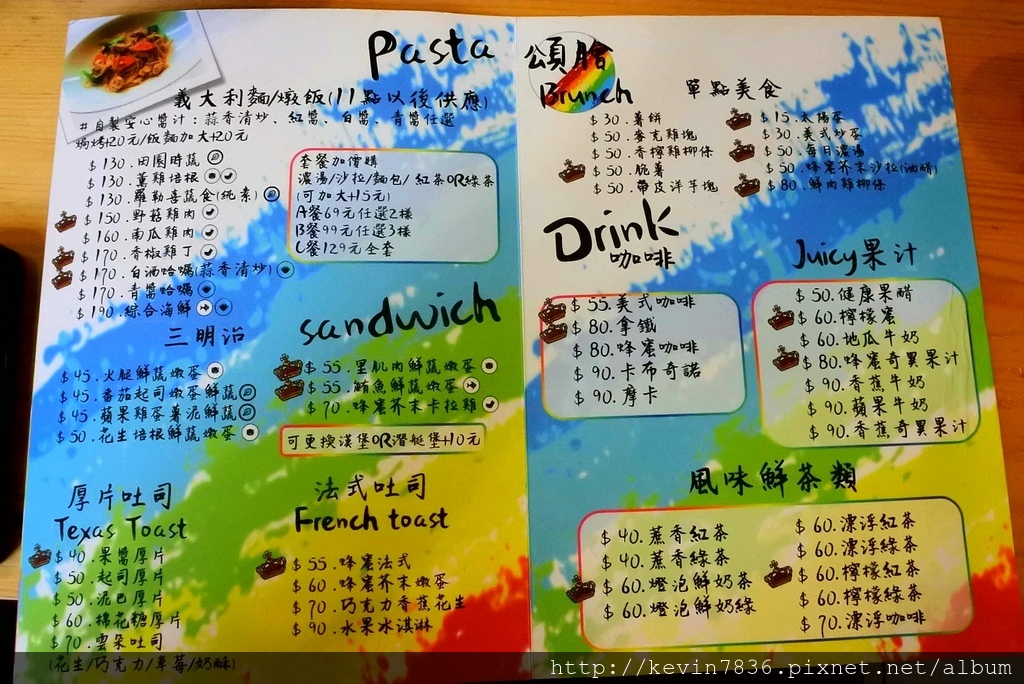 Pasta
義大利麵/燉飯(11點以後供應)
#自製安心醬汁:蒜香清炒、紅醬、白醬、青醬任選
焗烤+20元/飯麵加大+20元
$130.田園時蔬
$130.薰雞培根
$130.羅勒喜蔬食(純素)
$150.野菇雞肉
$160.南瓜雞肉
$170.香椒雞丁
$170.白酒蛤蠣(蒜香清炒)
$170.青醬蛤蠣
$190.綜合海鮮
套餐加價購
濃湯/沙拉/麵包/紅茶OR綠茶
(可加大+15元)
A餐69元任選2樣
B餐99元任選3樣
C餐129元全套
三明治
sandwich
$45.火腿鮮蔬嫩蛋
$45.番茄起司嫩蛋鮮蔬
$45.蘋果雞蛋薯泥鮮蔬
$50.花生培根鮮蔬嫩蛋
$55.里肌肉鮮蔬嫩蛋
$55.鮪魚鮮蔬嫩蛋
$70.蜂蜜芥末卡拉雞
可更換漢堡OR潛艇堡+10元
厚片吐司
Texas Toast
$40.果醬厚片
$50.起司厚片
$50.泥巴厚片
$60.棉花糖厚片
$70.雲朵吐司
(花生/巧克力/草莓/奶酥)
法式吐司
French toast
$55.蜂蜜法式
$60.蜂蜜芥末嫩蛋
$70.巧克力香蕉花生
$90.水果冰淇淋
頌胎
Brunch
單點美食
$30.薯餅
$50.麥克雞塊
$50.香檸雞柳條
$50.脆薯
$50.帶皮洋芋塊
$15.太陽蛋
$30.美式炒蛋
$50.每日濃湯
$50.蜂蜜芥末沙拉(油醋)
$80.鮮肉雞柳條
Drink
咖啡
$55.美式咖啡
$80.拿鐵
$80.蜂蜜咖啡
$90.卡布奇諾
$90.摩卡
Juicy果汁
$50.健康果醋
$60.檸檬蜜
$60.地瓜牛奶
$80.蜂蜜奇異果汁
$90.香蕉牛奶
$90.蘋果牛奶
$90.香蕉奇異果汁
風味鮮茶類
$40.蔗香紅茶
$40.蔗香綠茶
$60.燈泡鮮奶茶
$60.燈泡鮮奶綠
$60.漂浮紅茶
$60.漂浮綠茶
$60.檸檬紅茶
$60.檸檬綠茶
$70.漂浮咖啡
http://kevin7836.pixnet.net/album